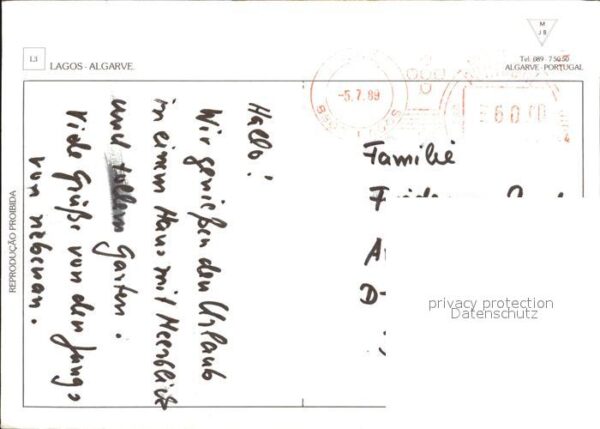 L3
LAGOS - ALGARVE
M
J B
Tel. 089 - 7 50 50
ALGARVE - PORTUGAL
-5.7.89
60.00
REPRODUÇÃO PROIBIDA
Hallo!
Wir genießen den Urlaub
in einem Haus mit Meerblick
und tollem Garten.
Viele Grüße von den Jungs
von nebenan.
Familie
D-
privacy protection
Datenschutz